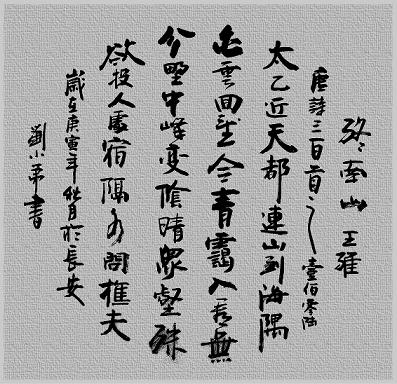 終南山 王維
唐詩三百首之 壹佰零陆
太乙近天都連山到海隅
白雲回望合青靄入看無
分野中峰變陰晴衆壑殊
欲投人處宿隔水問樵夫
歲在庚寅年秋月於長安
劉小書